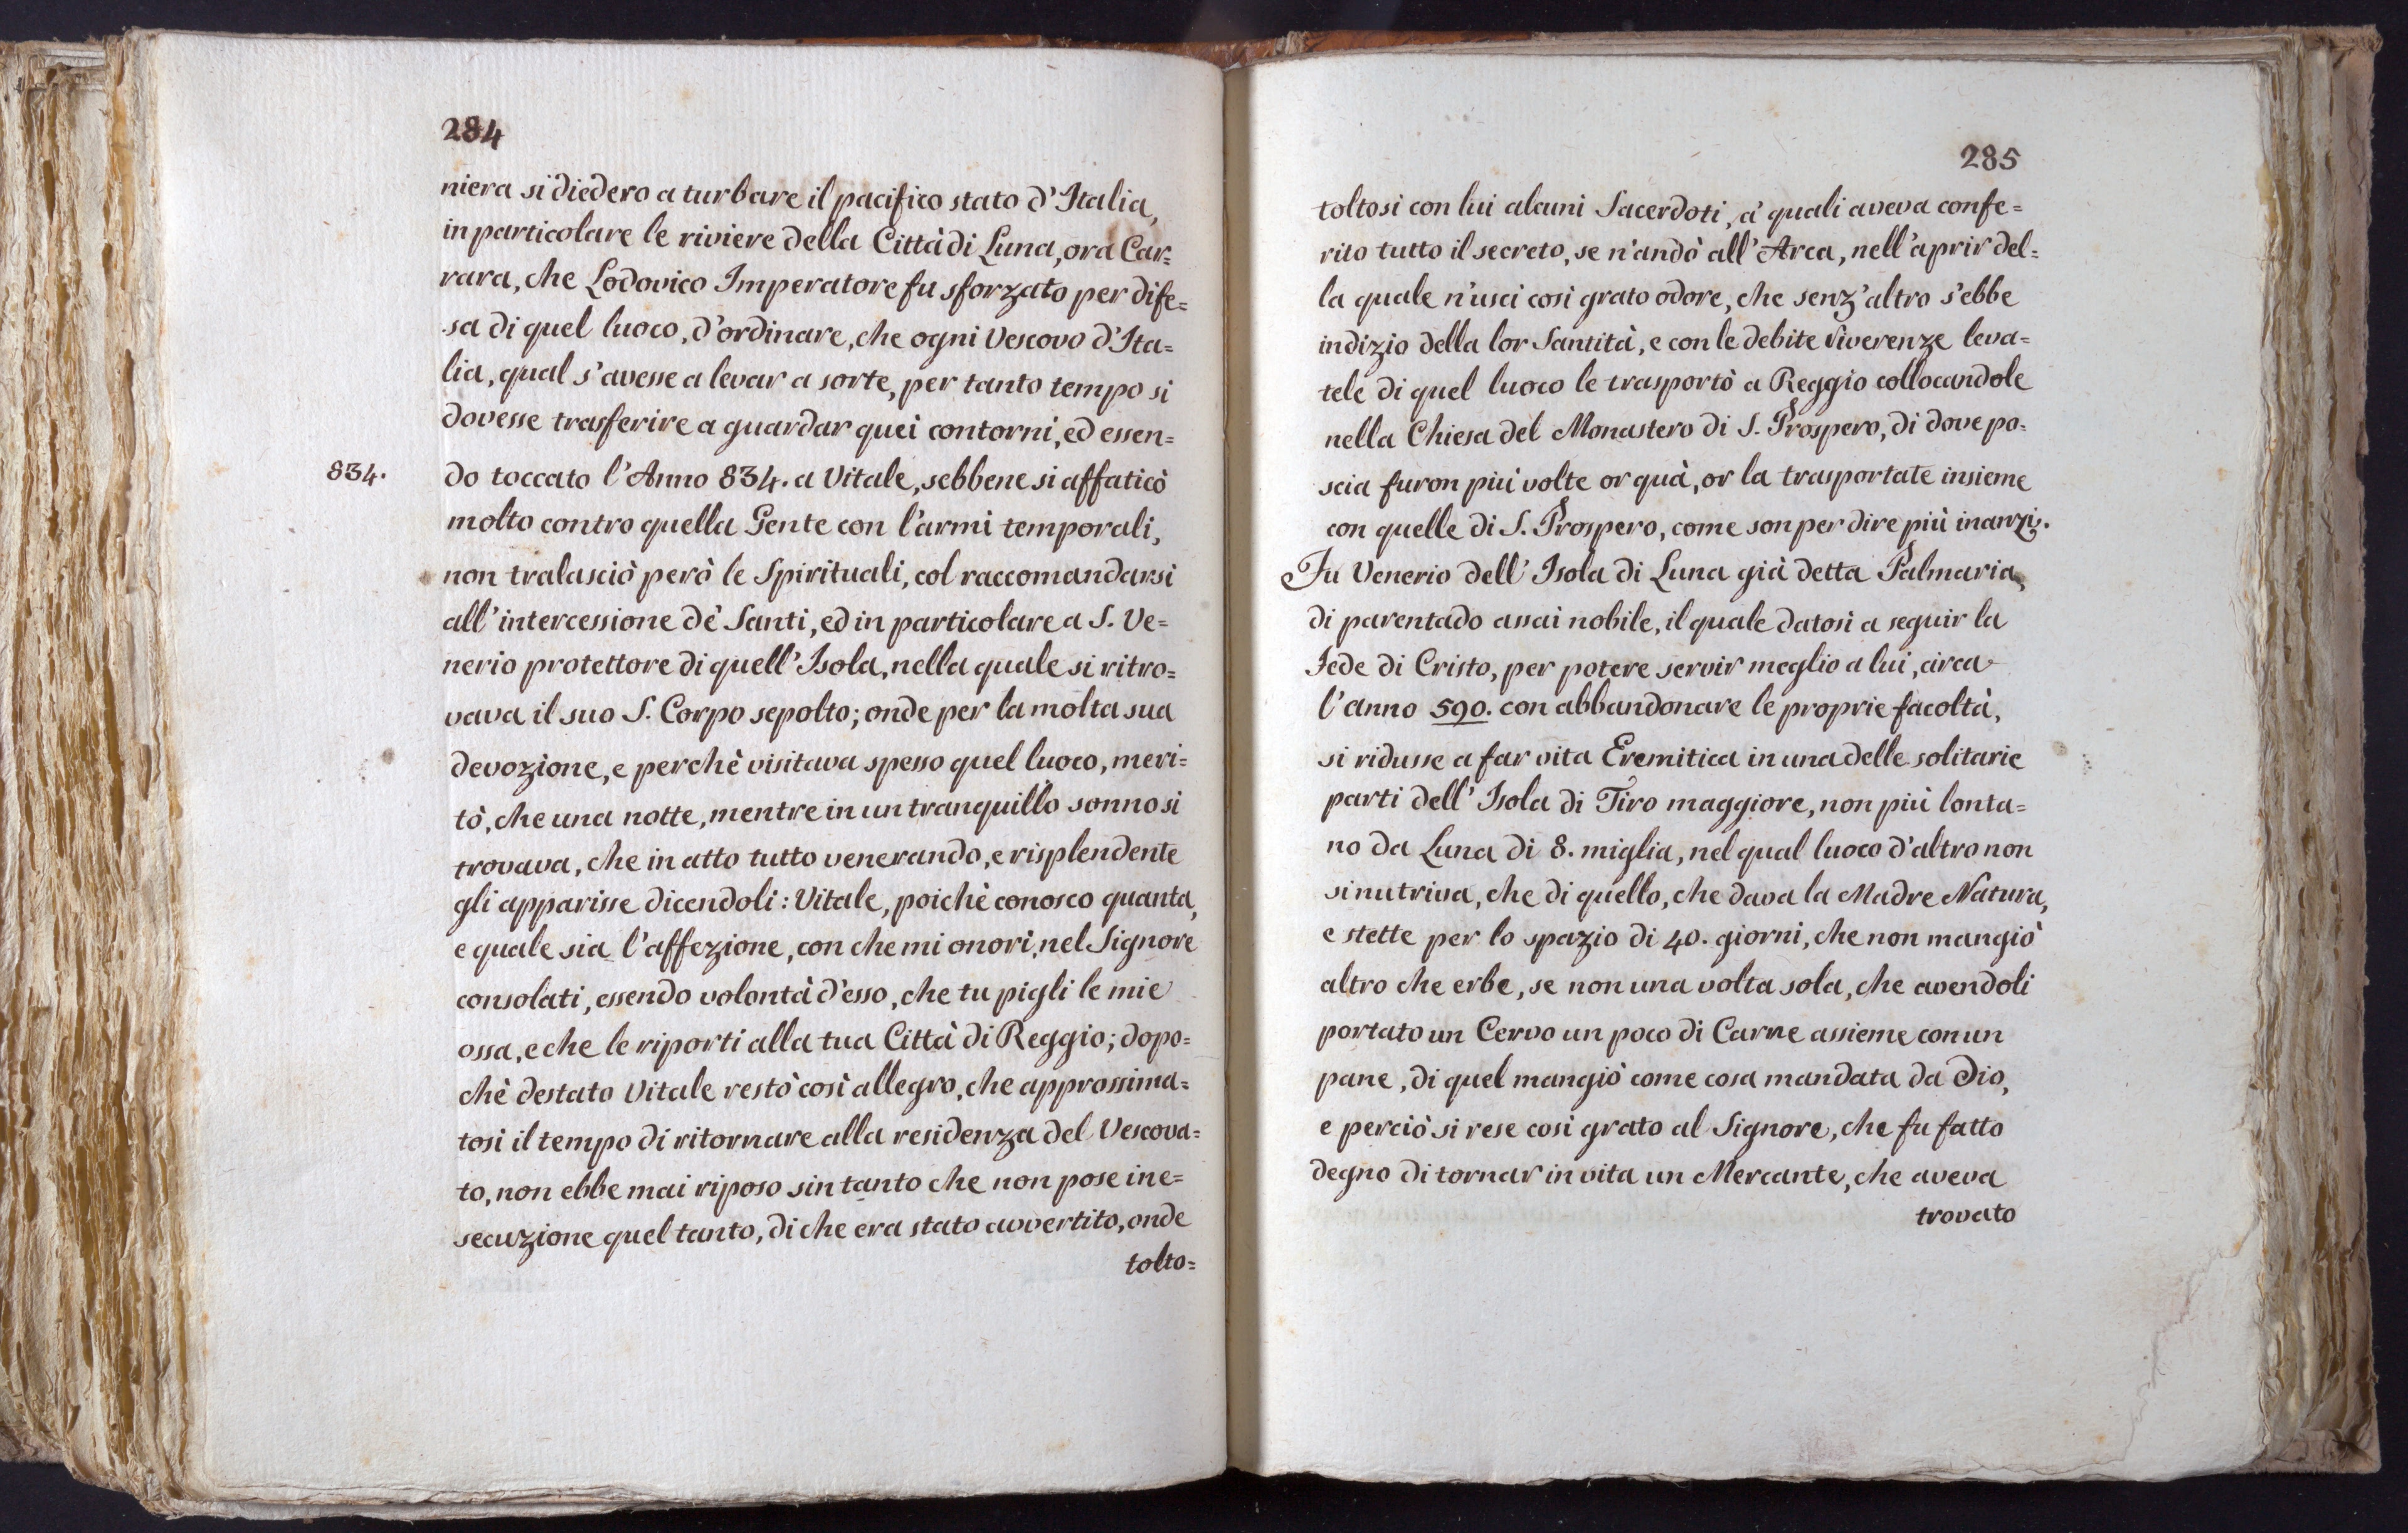 284
niera si diedero a turbare il pacifico stato d'Italia,
in particolare le riviere della Città di Luna, ora Car=
rara, che Lodovico Imperatore fu sforzato per dife=
sa di quel luoco, d'ordinare, che ogni Vescovo d'Ita=
lia, qual s'avesse a levar a sorte, per tanto tempo si
dovesse trasferire a guardar quei contorni, ed essen=
834.
do toccato l'Anno 834. a Vitale, sebbene si affaticò
molto contro quella Gente con l'armi temporali,
non tralasciò però le Spirituali, col raccomandarsi
all'intercessione de' Santi, ed in particolare a S. Ve=
nerio protettore di quell'Isola, nella quale si ritro=
vava il suo S. Corpo sepolto; onde per la molta sua
devozione, e perchè visitava spesso quel luoco, meri=
tò, che una notte, mentre in un tranquillo sonno si
trovava, che in atto tutto venerando, e risplendente
gli apparisse dicendoli: Vitale, poichè conosco quanta,
e quale sia l'affezione, con che mi onori, nel Signore
consolati, essendo volontà d'esso, che tu pigli le mie
ossa, e che le riporti alla tua Città di Reggio; dopo=
chè destato Vitale restò così allegro, che approssima=
tosi il tempo di ritornare alla residenza del Vescova=
to, non ebbe mai riposo sin tanto che non pose in e=
secuzione quel tanto, di che era stato avvertito, onde
tolto=
285
toltosi con lui alcuni Sacerdoti, a' quali aveva confe=
rito tutto il secreto, se n'andò all'Arca, nell'aprir del=
la quale n'uscì così grato odore, che senz'altro s'ebbe
indizio della lor Santità, e con le debite riverenze leva=
tele di quel luoco le trasportò a Reggio collocandole
nella Chiesa del Monastero di S. Prospero, di dove po=
scia furon più volte or quà, or la trasportate insieme
con quelle di S. Prospero, come son per dire più inanzi.
Fu Venerio dell'Isola di Luna già detta Palmaria,
di parentado assai nobile, il quale datosi a seguir la
Fede di Cristo, per potere servir meglio a lui, circa
l'anno 590. con abbandonare le proprie facoltà,
si ridusse a far vita Eremitica in una delle solitarie
parti dell'Isola di Tiro maggiore, non più lonta=
no da Luna di 8. miglia, nel qual luoco d'altro non
si nutriva, che di quello, che dava la Madre Natura,
e stette per lo spazio di 40. giorni, che non mangiò
altro che erbe, se non una volta sola, che avendoli
portato un Cervo un poco di Carne assieme con un
pane, di quel mangiò come cosa mandata da Dio,
e perciò si rese così grato al Signore, che fu fatto
degno di tornar in vita un Mercante, che aveva
trovato